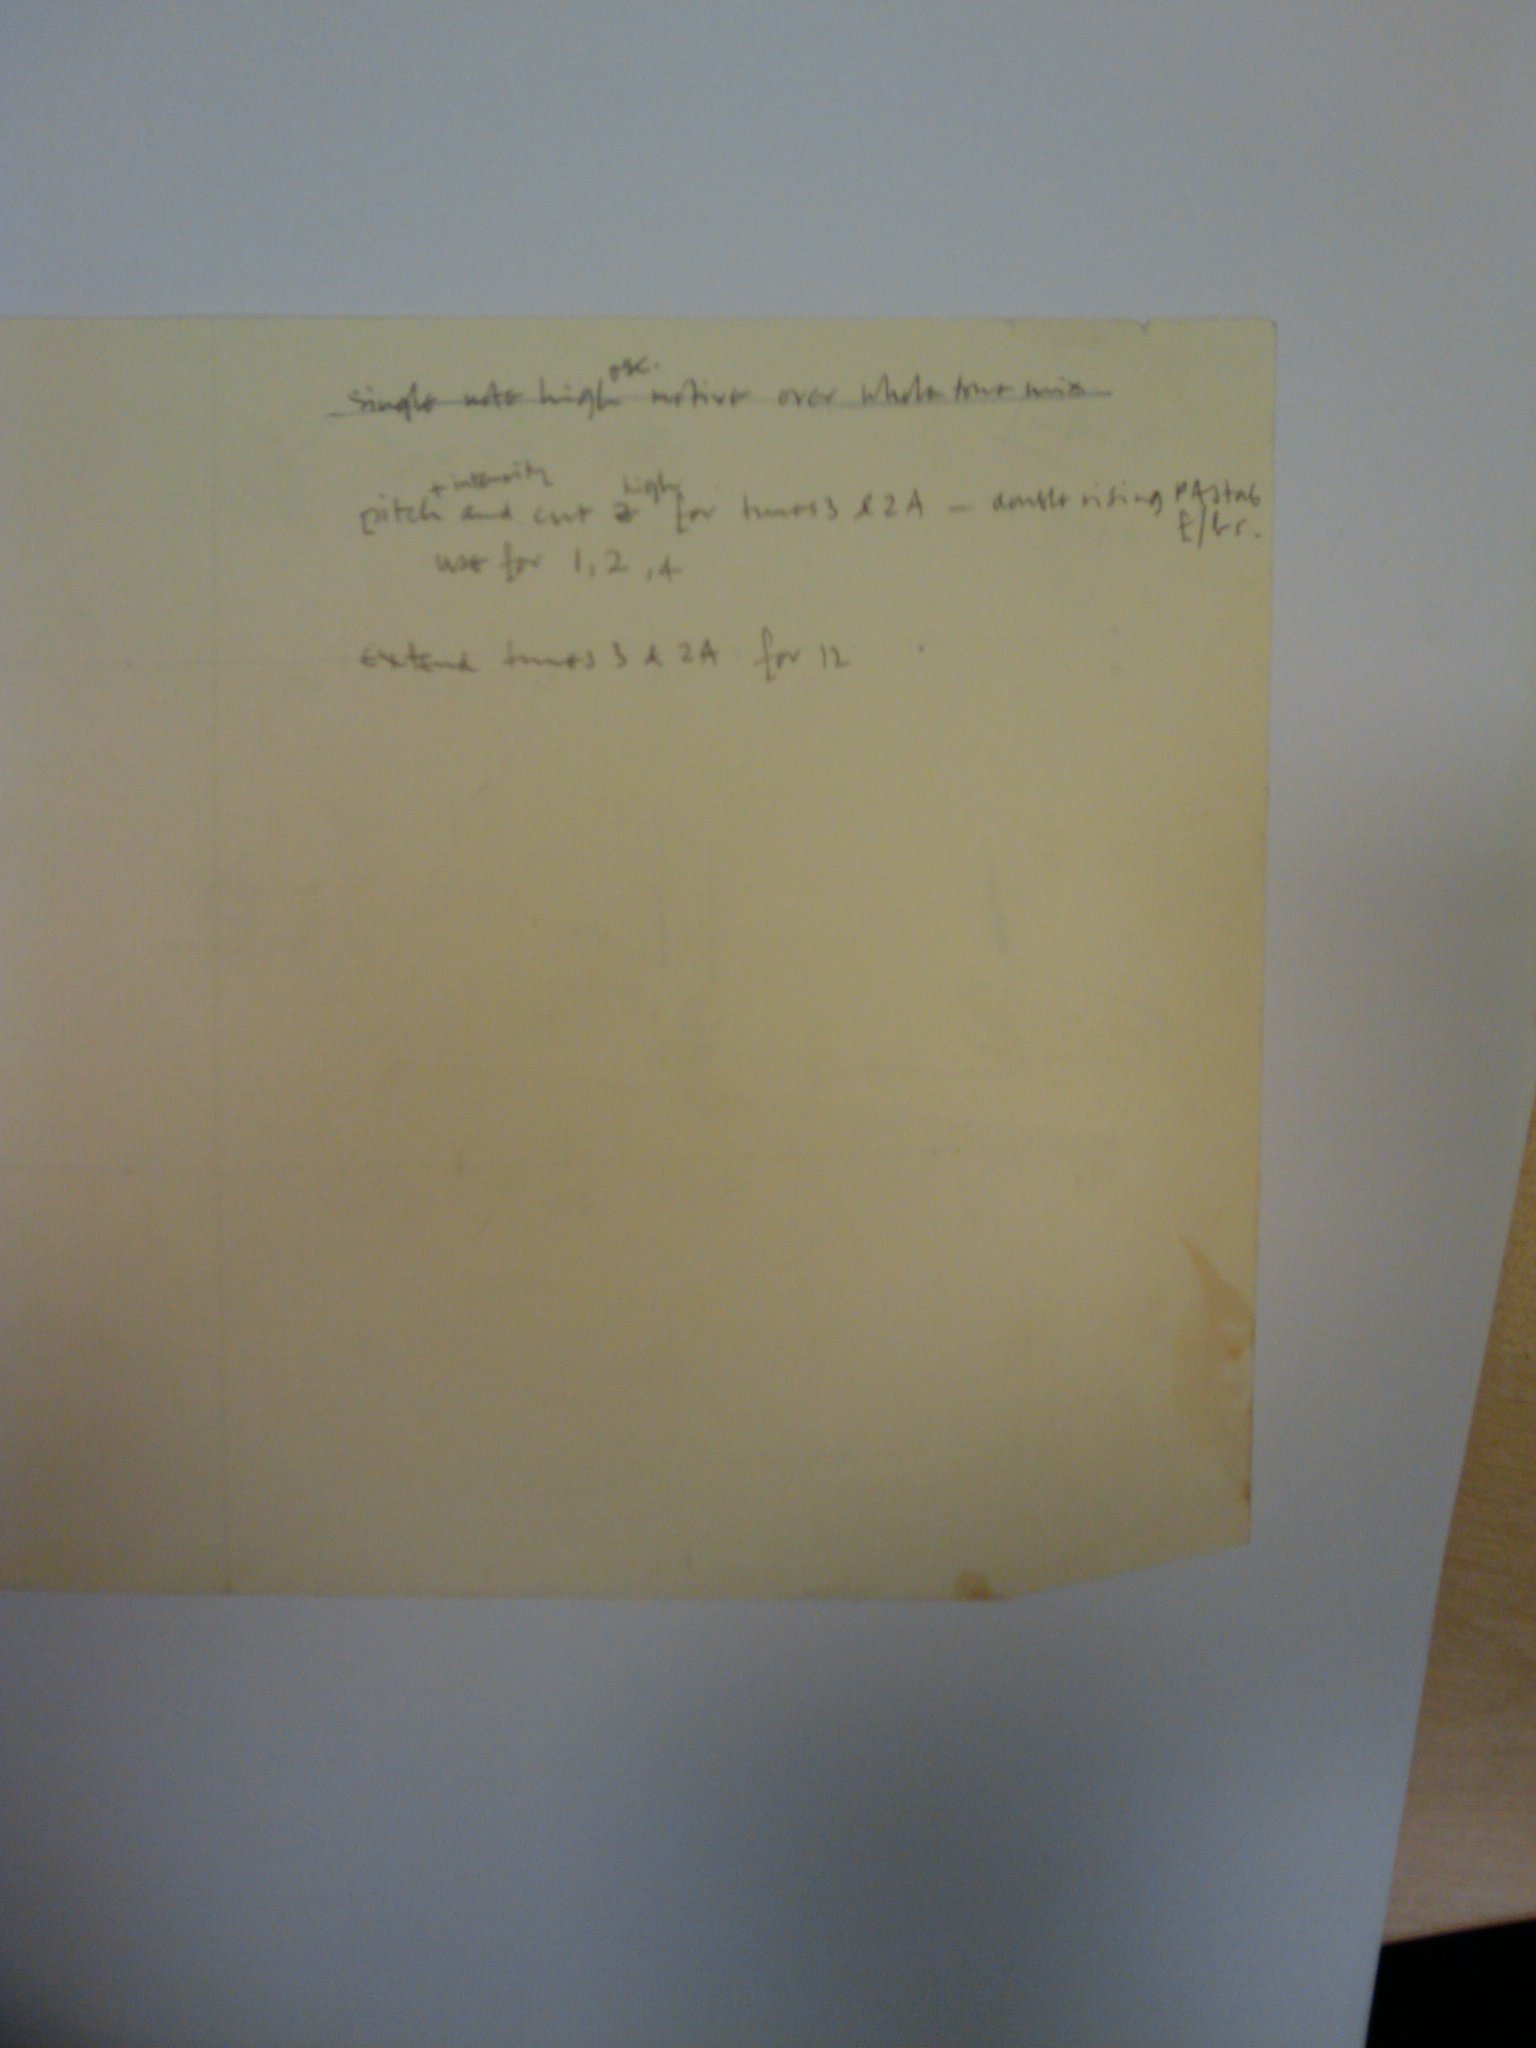 single note high osc. motive over whole tone mix
pitch + intensity and cut high for tunes 3 & 2A — double rising PA stab
E/Gr.
use for 1, 2, 4
extend tunes 3 & 2A for 12